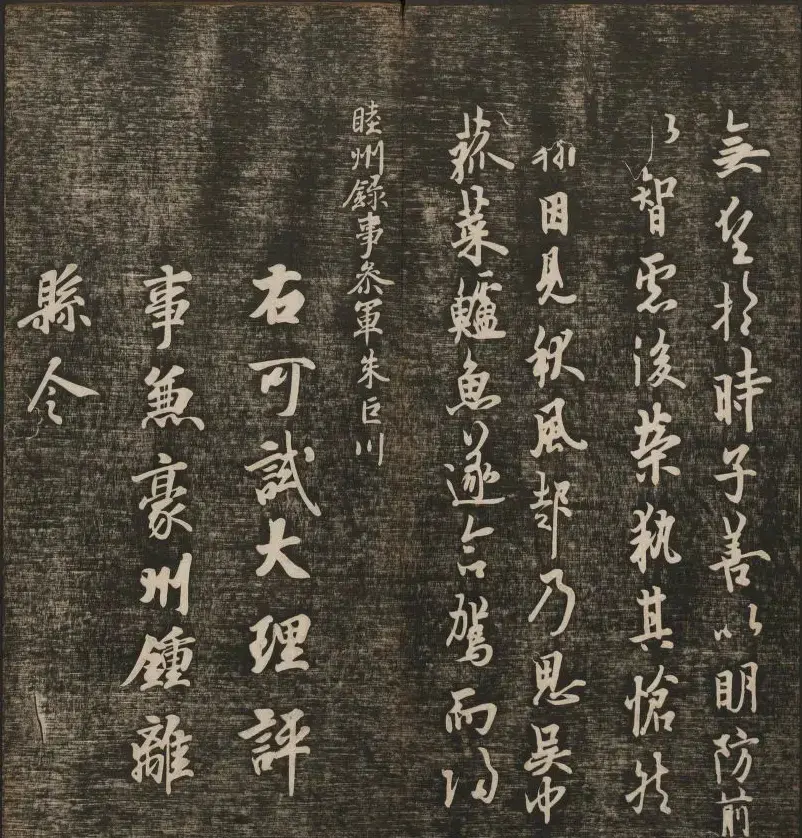 無望於時子善以明防前
以智慮後榮執其愴然
翰因見秋風起乃思吳中
菰菜鱸魚遂命駕而歸
睦州録事參軍朱巨川
右可試大理評
事兼豪州鍾離
縣令